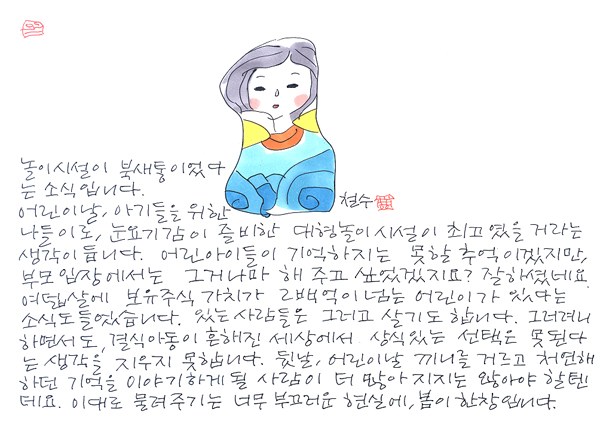 놀이시설이 북새통이었다
는 소식입니다.
철수
어린이날, 아기들을 위한
나들이로, 눈요기감이 즐비한 대형놀이시설이 최고였을 거라는
생각이 듭니다. 어린아이들이 기억하지는 못할 추억이겠지만,
부모 입장에서는 그거나마 해 주고 싶었겠지요? 잘하셨네요.
여덟살에 보유주식 가치가 2백억이 넘는 어린이가 있다는
소식도 들었습니다. 있는 사람들은 그러고 살기도 합니다. 그러려니
하면서도, 결식아동이 흔해진 세상에서 상식있는 선택은 못된다
는 생각을 지우지 못합니다. 뒷날, 어린이날 끼니를 거르고 처연해
하던 기억을 이야기하게 될 사람이 더 많아지지는 않아야 할텐
데요. 이대로 물려주기는 너무 부끄러운 현실에, 봄이 한창입니다.